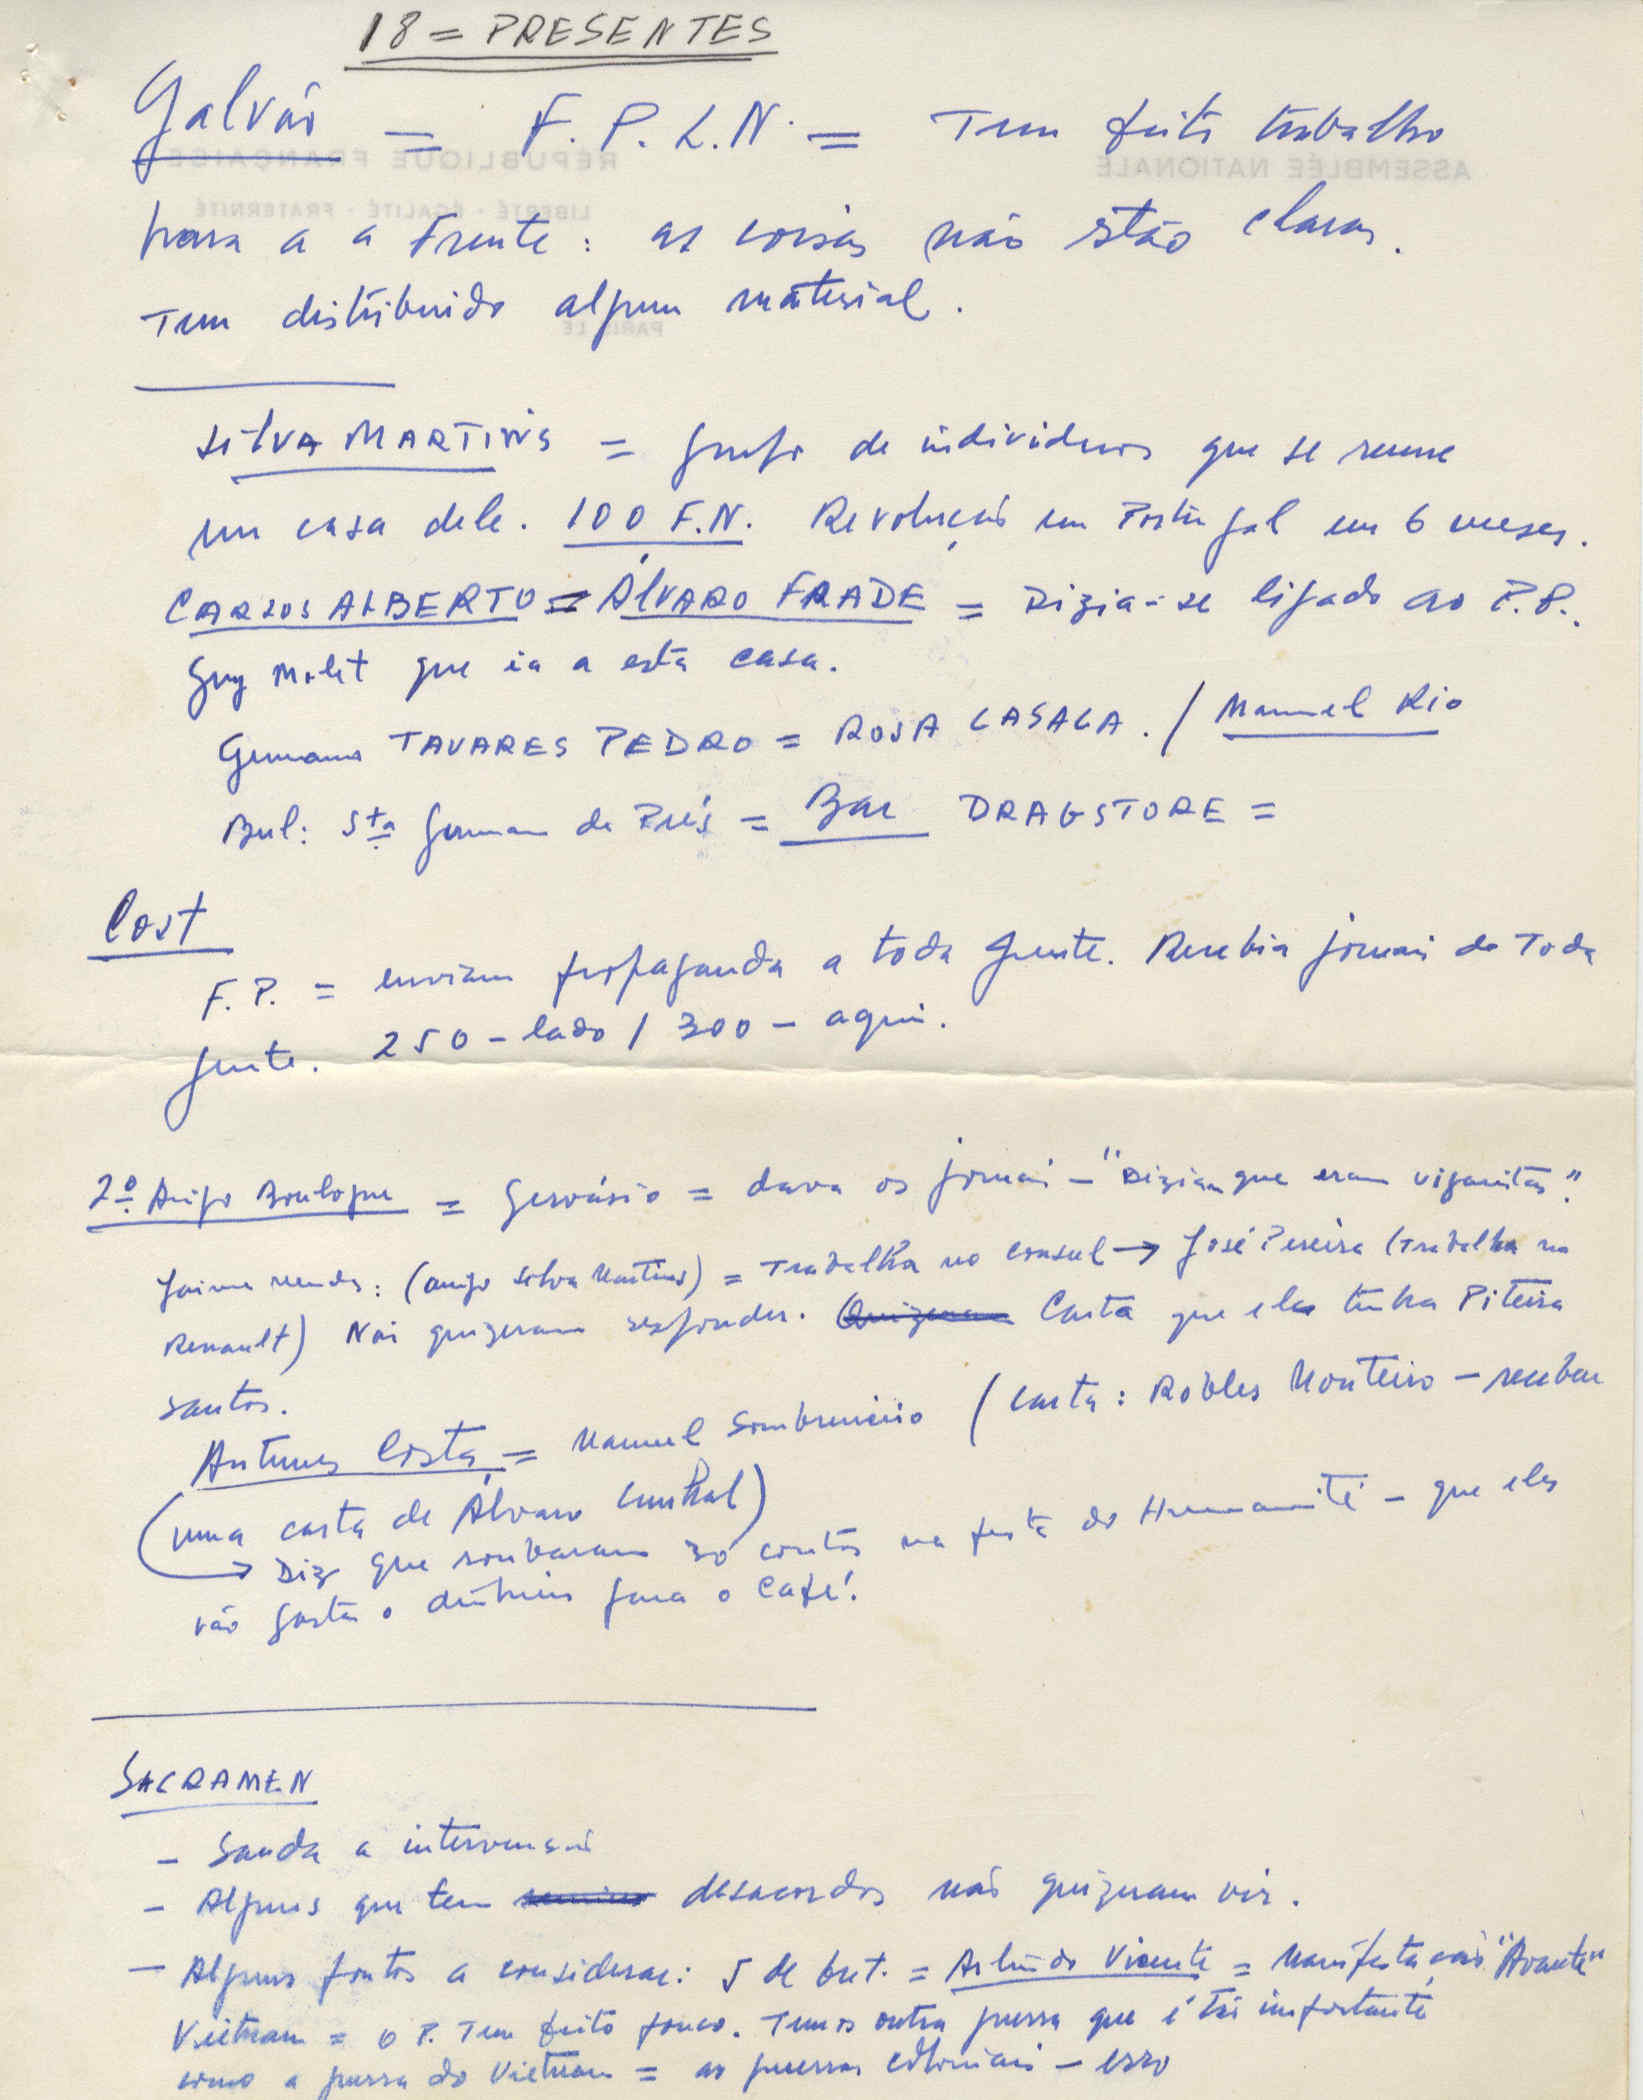 18 = PRESENTES
Galvão = F.P.L.N. = Tem feito trabalho
RÉPUBLIQUE FRANÇAISE
ASSEMBLÉE NATIONALE
LIBERTÉ · ÉGALITÉ · FRATERNITÉ
para a a Frente: as coisas não stão claras.
Tem distribuido algum material.
PARIS LE
SILVA MARTINS = grupo de individuos que se reune
em casa dele. 100 F.N. Revolução em Portugal em 6 meses.
CARLOS ALBERTO = ÁLVARO FRADE = Dizia-se ligado ao P.P..
Guy Molet que ia a esta casa.
Germano TAVARES PEDRO = ROSA CASACA. / Manuel Rio
Bul: Sta German de Prés = Bar DRAGSTORE =
Cost
F.P. = enviam propaganda a toda gente. Recebia jornais de Toda
gente. 250 - lado / 300 - aqui.
2º Amigo Boulogne = Gervásio = dava os jornais - "Diziam que eram vigaristas".
Jaime Mendes: (amigo Silva Martins) = Trabalha no consul → José Pereira (Trabalha na
Renault) Não quizeram responder. Quizeram Carta que eles tinha Piteira
Santos.
Antunes Costa = Manuel Sombreireiro (Carta: Robles Monteiro - receber
(uma carta de Álvaro Cunhal)
→ Diz que roubaram 30 contos na festa do Humanité - que eles
vão gastar o dinheiro para o Café!
SACRAMEN
- Sauda a intervensão
- Alguns que tem desacordos não quizeram vir.
- Alguns pontos a considerar: 5 de Out. = Arlindo Vicente = Manifestação "Avante"
Vietnam = o P. Tem feito pouco. Temos outra guerra que é tão importante
como a guerra do Vietnam = as guerras coloniais - erro